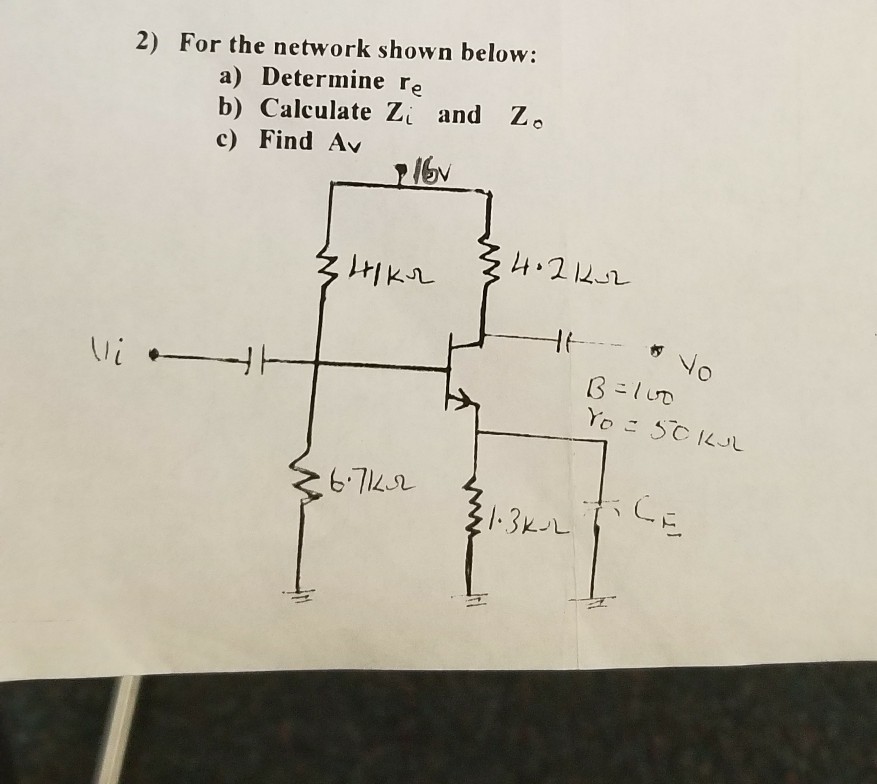 2) For the network shown below:
a) Determine re
b) Calculate Zi and Zo
c) Find Av
16V
41KΩ
4.2KΩ
Vi
Vo
B=100
ro = 50KΩ
6.7KΩ
1.3KΩ
CE